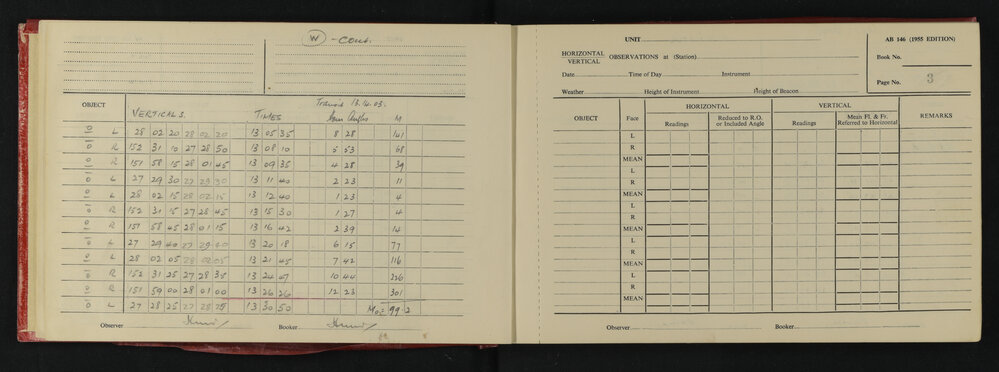 W - Cont.
Transit 13.14.03.
OBJECT VERTICALS TIMES Hour Angles M
O L 28 02 20 28 02 20 13 05 35 8 28 141
O R 152 31 10 27 28 50 13 08 10 5 53 68
O R 151 58 15 28 01 45 13 09 35 4 28 39
O L 27 29 30 27 29 30 13 11 40 2 23 11
O L 28 02 15 28 02 15 13 12 40 1 23 4
O R 152 31 15 27 28 45 13 15 30 1 27 4
O R 151 58 45 28 01 15 13 16 42 2 39 14
O L 27 29 40 27 29 40 13 20 18 6 15 77
O L 28 02 05 28 02 05 13 21 45 7 42 116
O R 152 31 25 27 28 35 13 24 47 10 44 226
O R 151 59 00 28 01 00 13 26 26 12 23 301
O L 27 28 25 27 28 25 13 30 50 Mo= 99.2
Observer Booker
UNIT AB 146 (1955 EDITION)
HORIZONTAL
VERTICAL OBSERVATIONS at (Station) Book No.
Date Time of Day Instrument
Page No. 3
Weather Height of Instrument Height of Beacon
OBJECT Face HORIZONTAL VERTICAL REMARKS
Readings Reduced to R.O. or Included Angle Readings Mean Fl. & Fr. Referred to Horizontal
L
R
MEAN
L
R
MEAN
L
R
MEAN
L
R
MEAN
L
R
MEAN
Observer Booker